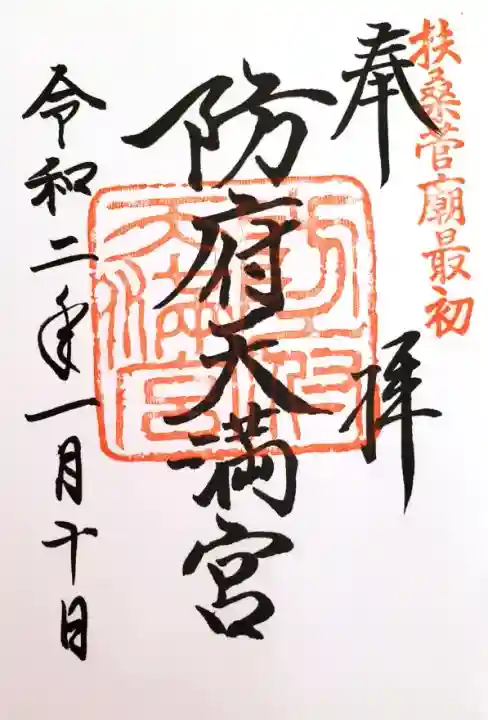 扶桑菅廟最初
奉拝
防府天満宮
防府天満宮
令和二年一月十日